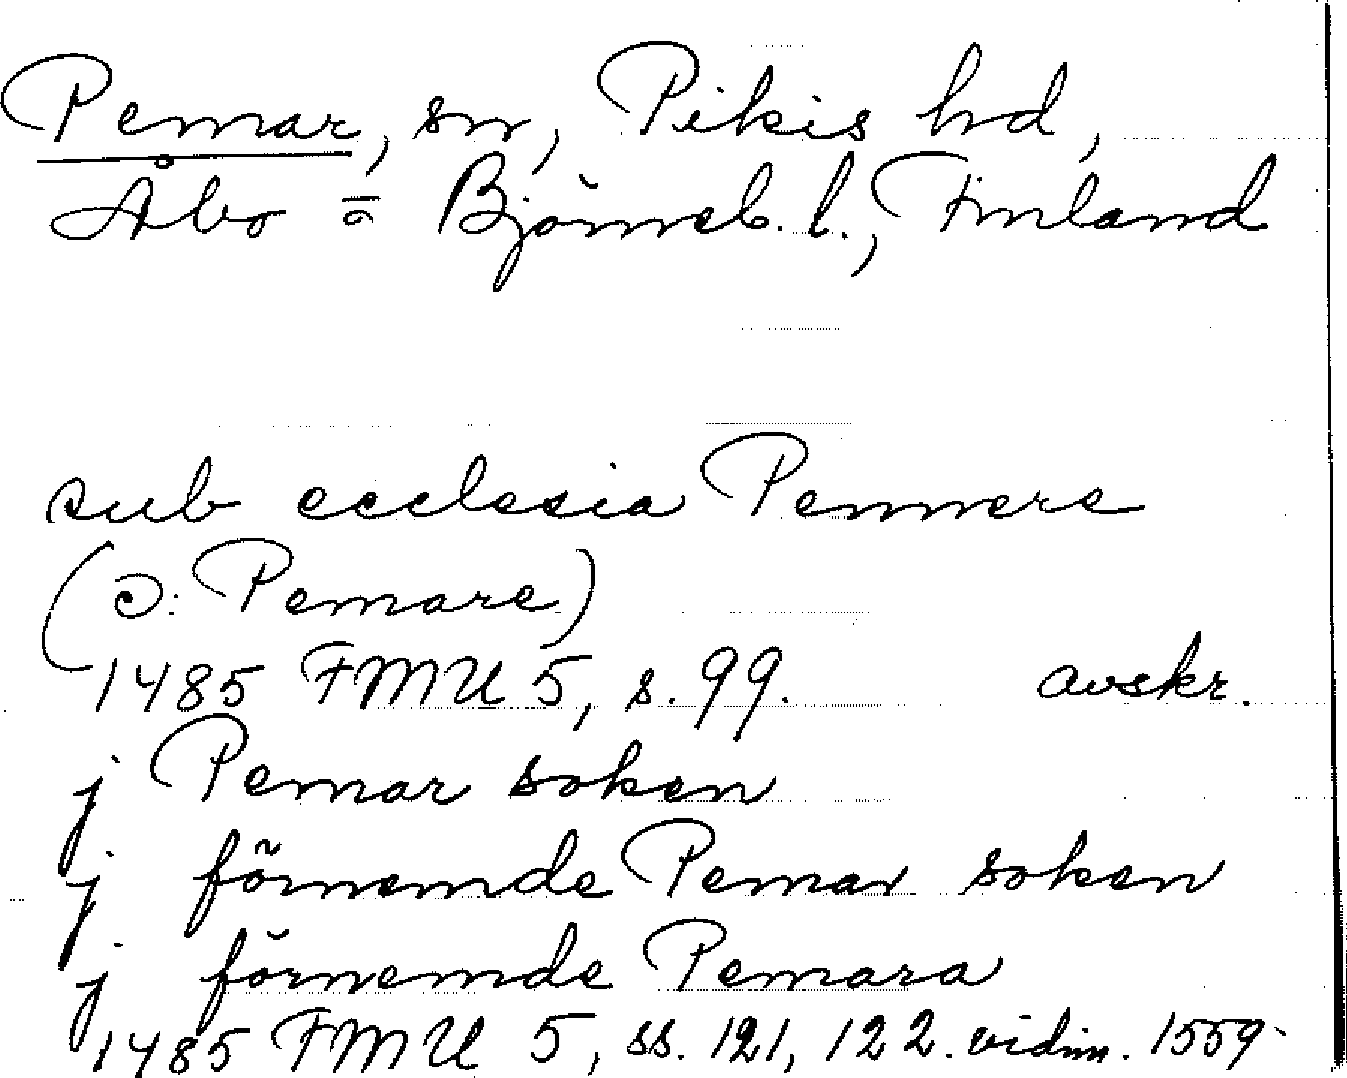 Pemar, sn, Pikis hd,
Åbo = Björneb. l., Finland
sub ecclesia Pemmere
(ɔ: Pemare)
1485 FMU 5, s. 99. avskr.
j Pemar soken
j förnemde Pemar soken
j förnemde Pemara
1485 FMU 5, ss. 121, 122. vidim. 1559.